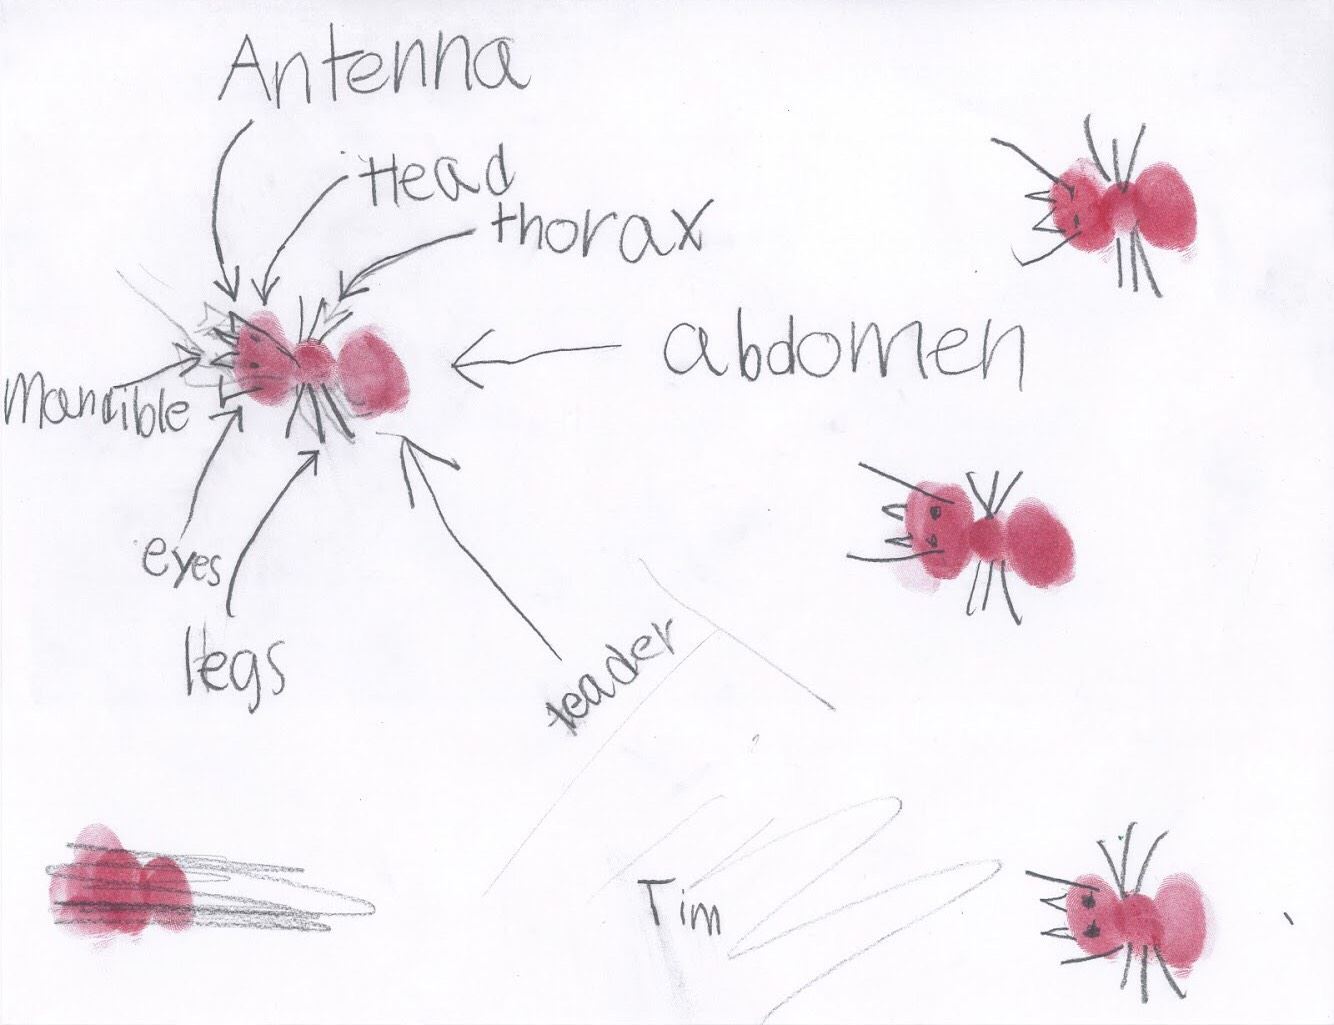 Antenna
Head
thorax
abdomen
Mandible
eyes
legs
leader
Tim